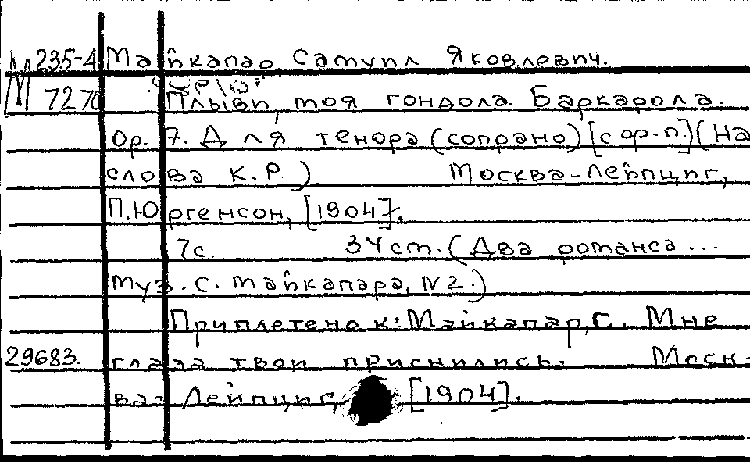 М 235-4 Майкапар Самуил Яковлевич.
7270 Плыви, моя гондола. Баркарола.
Ор. 7. Для тенора (сопрано) [с ф-п.] (На
слова К.Р.) Москва-Лейпциг,
П.Юргенсон, [1904].
7с. 34 см. (Два романса ...
муз. С. Майкапара, N2.)
Приплетено к: Майкапар, С. Мне
29683. глаза твои приснились. Моск-
ва-Лейпциг, [1904].